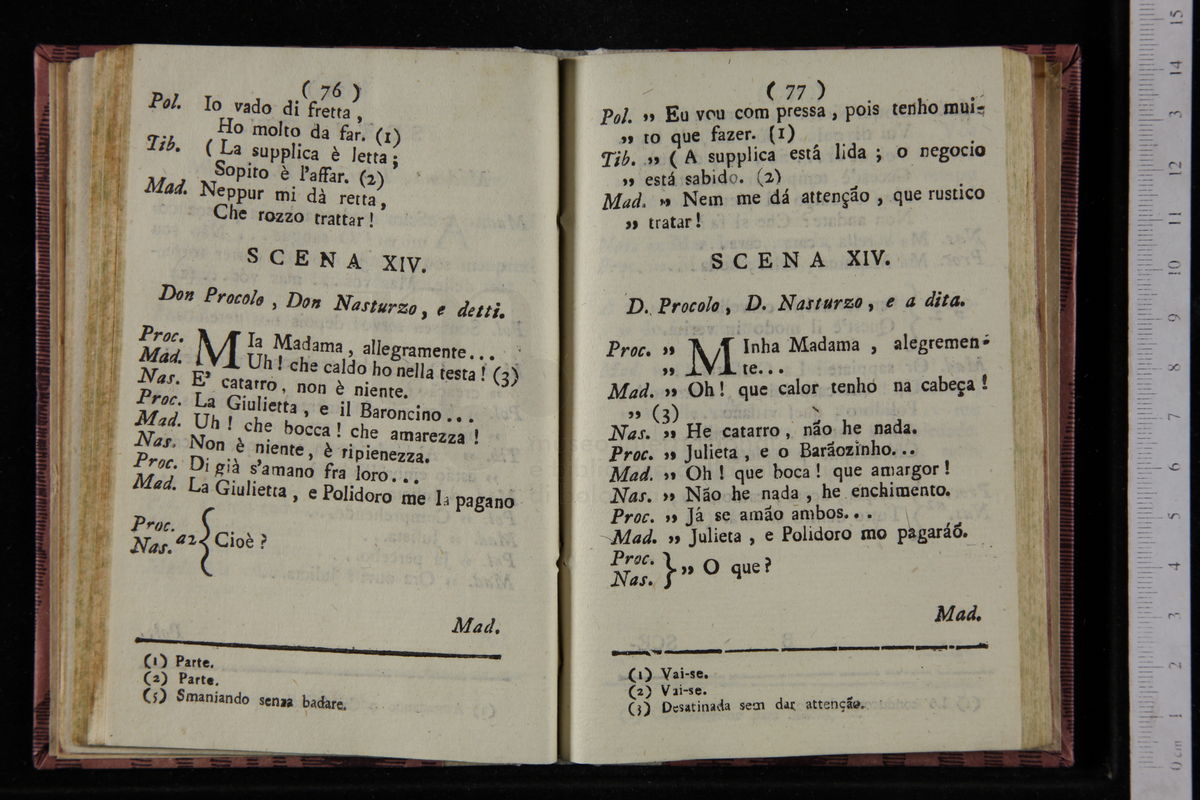 ( 76 )
Pol. Io vado di fretta,
Ho molto da far. (1)
Tib. ( La supplica è letta;
Sopito è l'affar. (2)
Mad. Neppur mi dà retta,
Che rozzo trattar!
SCENA XIV.
Don Procolo, Don Nasturzo, e detti.
Proc. MIa Madama, allegramente...
Mad. Uh! che caldo ho nella testa! (3)
Nas. E' catarro, non è niente.
Proc. La Giulietta, e il Baroncino...
Mad. Uh! che bocca! che amarezza!
Nas. Non è niente, è ripienezza.
Proc. Di già s'amano fra loro...
Mad. La Giulietta, e Polidoro me la pagano
Proc.
Nas. a2 { Cioè?
Mad.
(1) Parte.
(2) Parte.
(3) Smaniando senza badare.
( 77 )
Pol. „ Eu vou com pressa, pois tenho mui-
„ to que fazer. (1)
Tib. „ ( A supplica está lida; o negocio
„ está sabido. (2)
Mad. „ Nem me dá attenção, que rustico
„ tratar!
SCENA XIV.
D. Procolo, D. Nasturzo, e a dita.
Proc. „ MInha Madama, alegremen-
„ te...
Mad. „ Oh! que calor tenho na cabeça!
„ (3)
Nas. „ He catarro, não he nada.
Proc. „ Julieta, e o Barãozinho...
Mad. „ Oh! que boca! que amargor!
Nas. „ Não he nada, he enchimento.
Proc. „ Já se amão ambos...
Mad. „ Julieta, e Polidoro mo pagaráõ.
Proc.
Nas. } „ O que?
Mad.
(1) Vai-se.
(2) Vai-se.
(3) Desatinada sem dar attenção.
15
14
13
12
11
10
9
8
7
6
5
4
3
2
1
0 cm